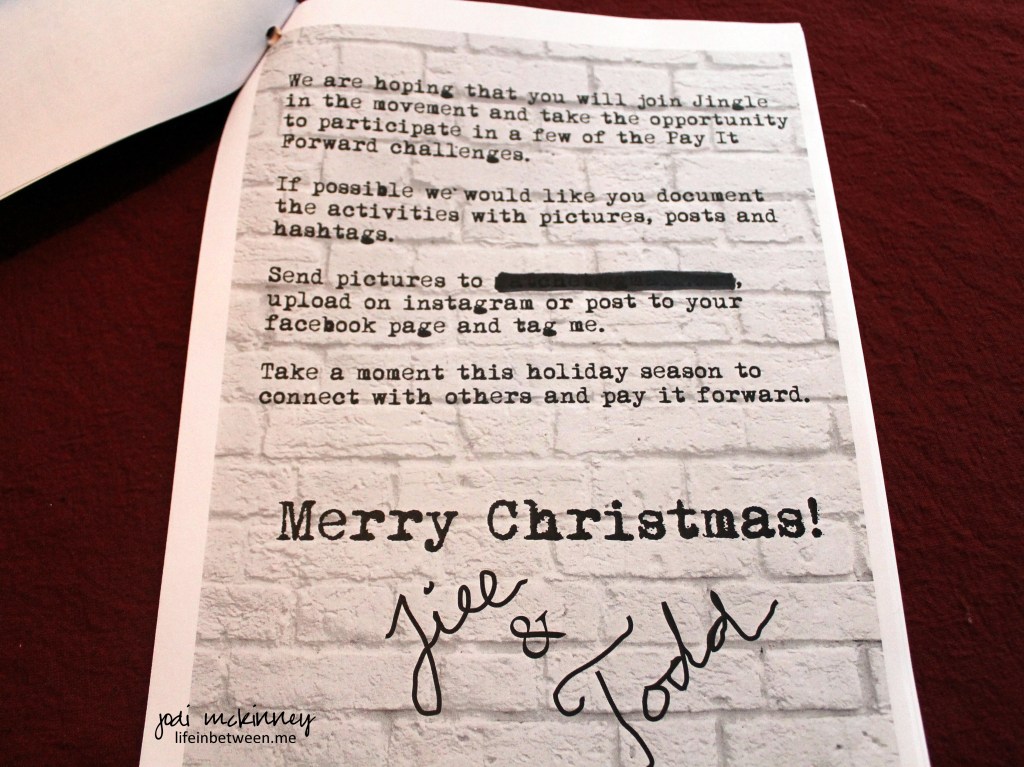 We are hoping that you will join Jingle
in the movement and take the opportunity
to participate in a few of the Pay It
Forward challenges.
If possible we would like you document
the activities with pictures, posts and
hashtags.
Send pictures to ,
upload on instagram or post to your
facebook page and tag me.
Take a moment this holiday season to
connect with others and pay it forward.
Merry Christmas!
Jill
&
Todd
jodi mckinney
lifeinbetween.me